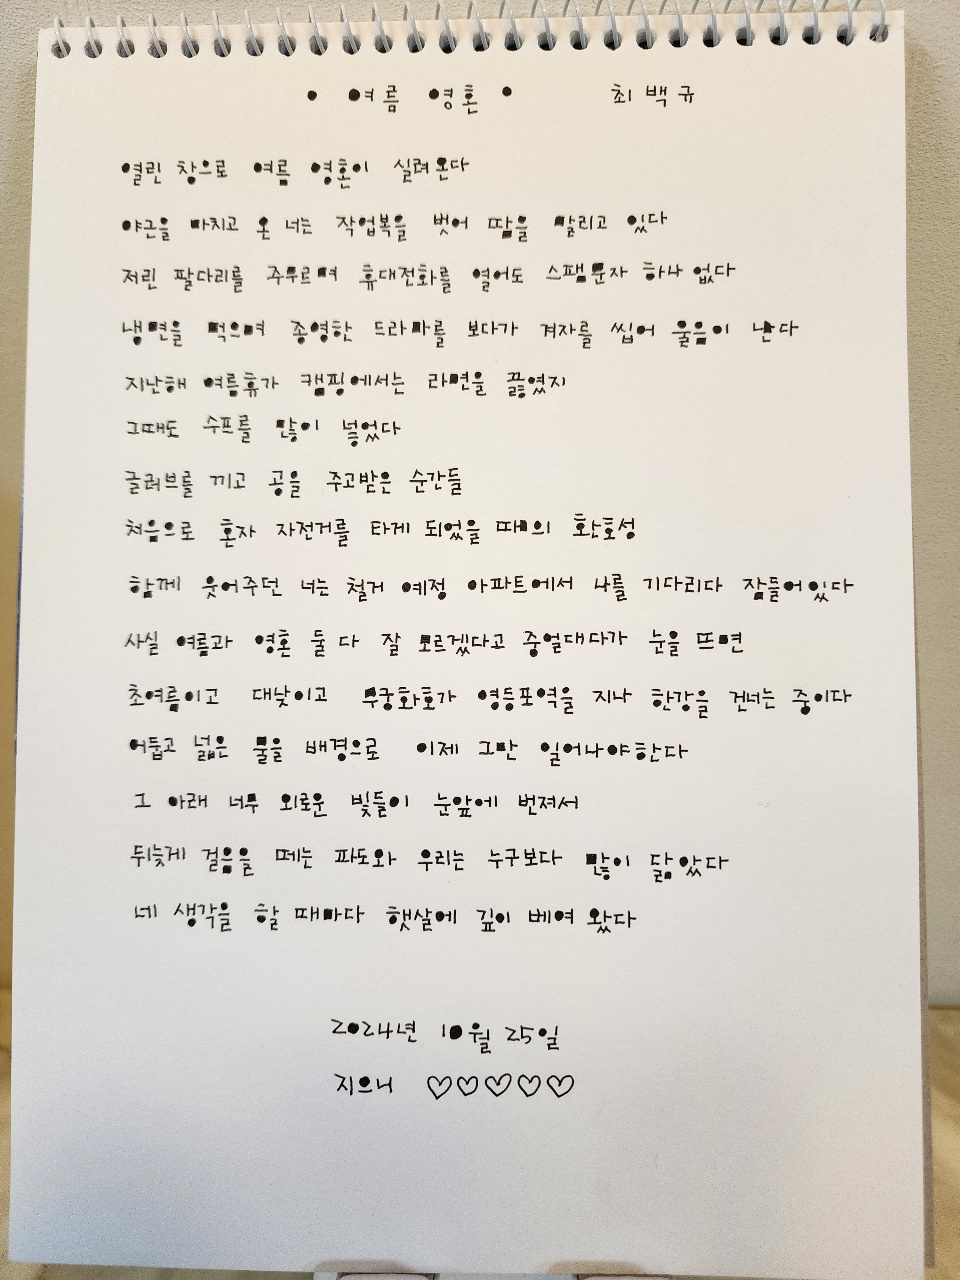 • 여름 영혼 • 최백규
열린 창으로 여름 영혼이 실려온다
야근을 마치고 온 너는 작업복을 벗어 땀을 말리고 있다
저린 팔다리를 주무르며 휴대전화를 열어도 스팸문자 하나 없다
냉면을 먹으며 종영한 드라마를 보다가 겨자를 씹어 울음이 난다
지난해 여름휴가 캠핑에서는 라면을 끓였지
그때도 수프를 많이 넣었다
글러브를 끼고 공을 주고받은 순간들
처음으로 혼자 자전거를 타게 되었을 때의 환호성
함께 웃어주던 너는 철거 예정 아파트에서 나를 기다리다 잠들어있다
사실 여름과 영혼 둘 다 잘 모르겠다고 중얼대다가 눈을 뜨면
초여름이고 대낮이고 무궁화호가 영등포역을 지나 한강을 건너는 중이다
어둡고 넓은 물을 배경으로 이제 그만 일어나야한다
그 아래 너무 외로운 빛들이 눈앞에 번져서
뒤늦게 걸음을 떼는 파도와 우리는 누구보다 많이 닮았다
네 생각을 할 때마다 햇살에 깊이 베여 왔다
2024년 10월 25일
지으니 ♡♡♡♡♡